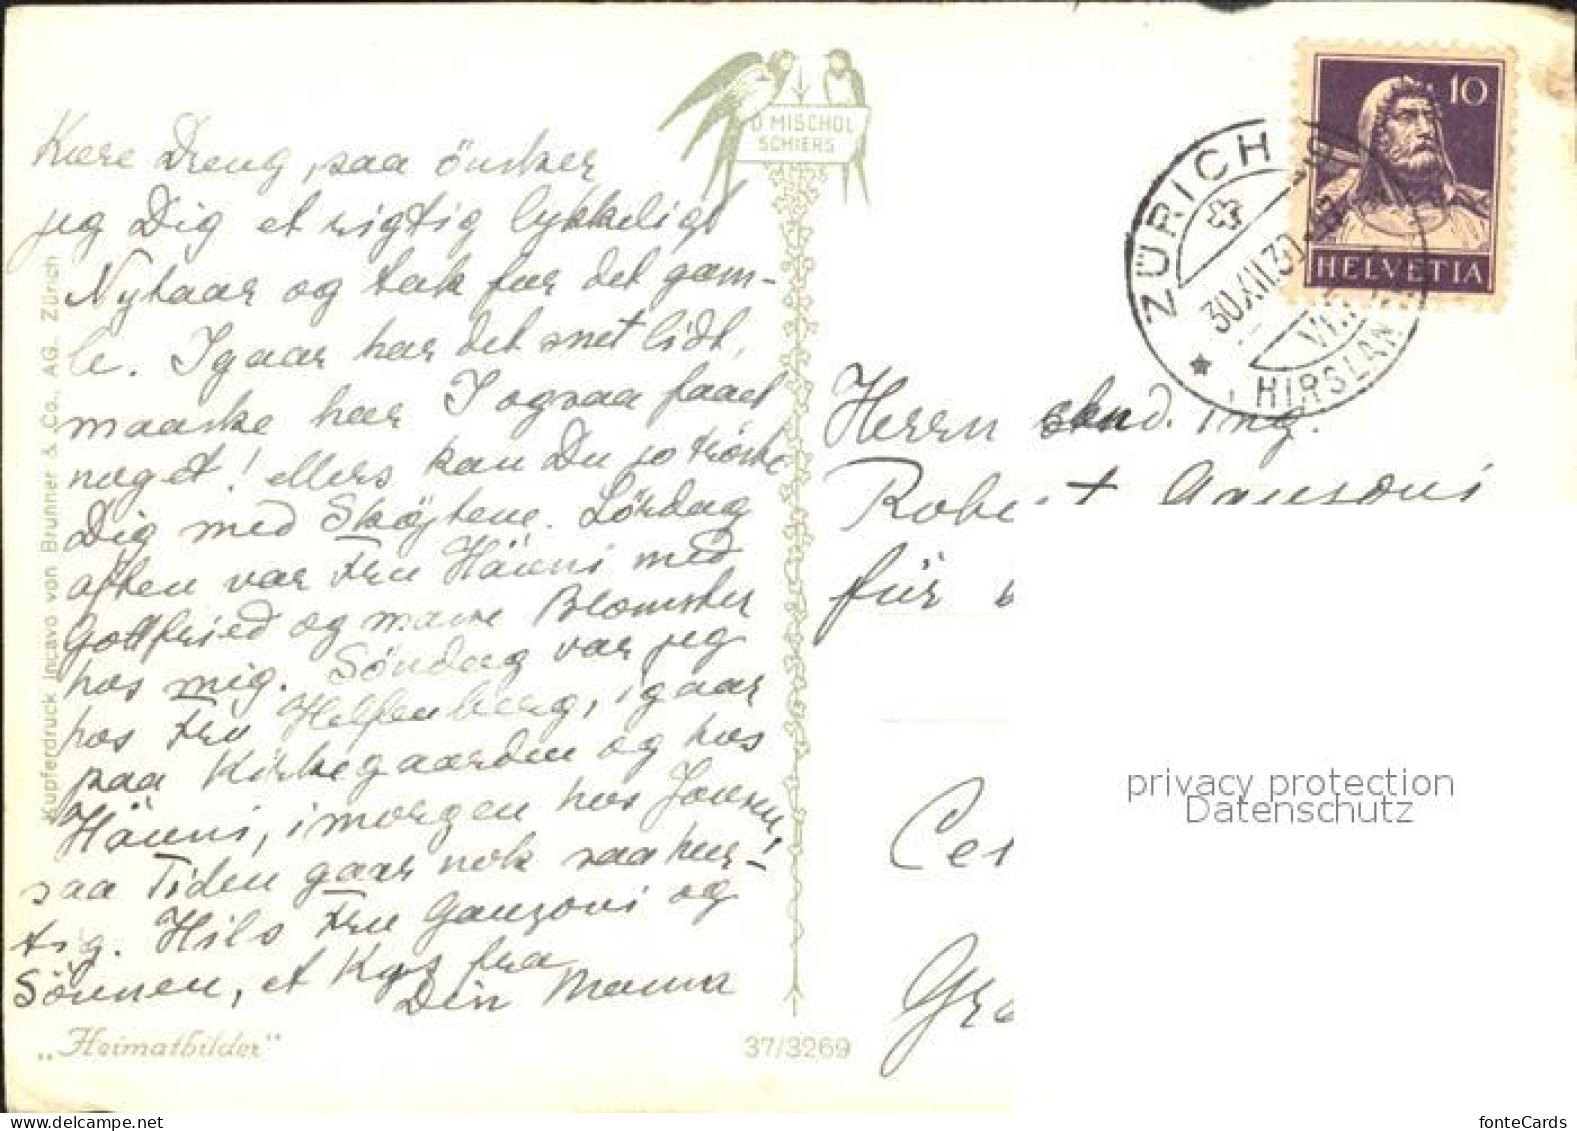 Kære Dreng, saa önsker
jeg Dig et rigtig lykkeligt
Nytaar og tak for det gam-
le. Igaar har det snet lidt,
maaske har I ogsaa faaet
noget! ellers kan Du jo tröste
Dig med Sköjtene. Lördag
aften var Fru Hänni med
Gottfried og mane Blomster
hos mig. Söndag var jeg
hos Fru Helfenberg, igaar
paa Kirkegaarden og hos
Hänni, imorgen hos Jansen,
saa Tiden gaar nok saa hur-
tig. Hils Fru Ganzoni og
Sönnen, et Kys fra
Din Mama
"Heimatbilder"
37/3269
Kupferdruck Incavo von Brunner & Co., AG., Zürich
D. MISCHOL
SCHIERS
10
HELVETIA
ZÜRICH
30.XII.30
HIRSLAN
Herrn stud. Ing.
Robert
für
Cer
Gra
privacy protection
Datenschutz
fonteCards